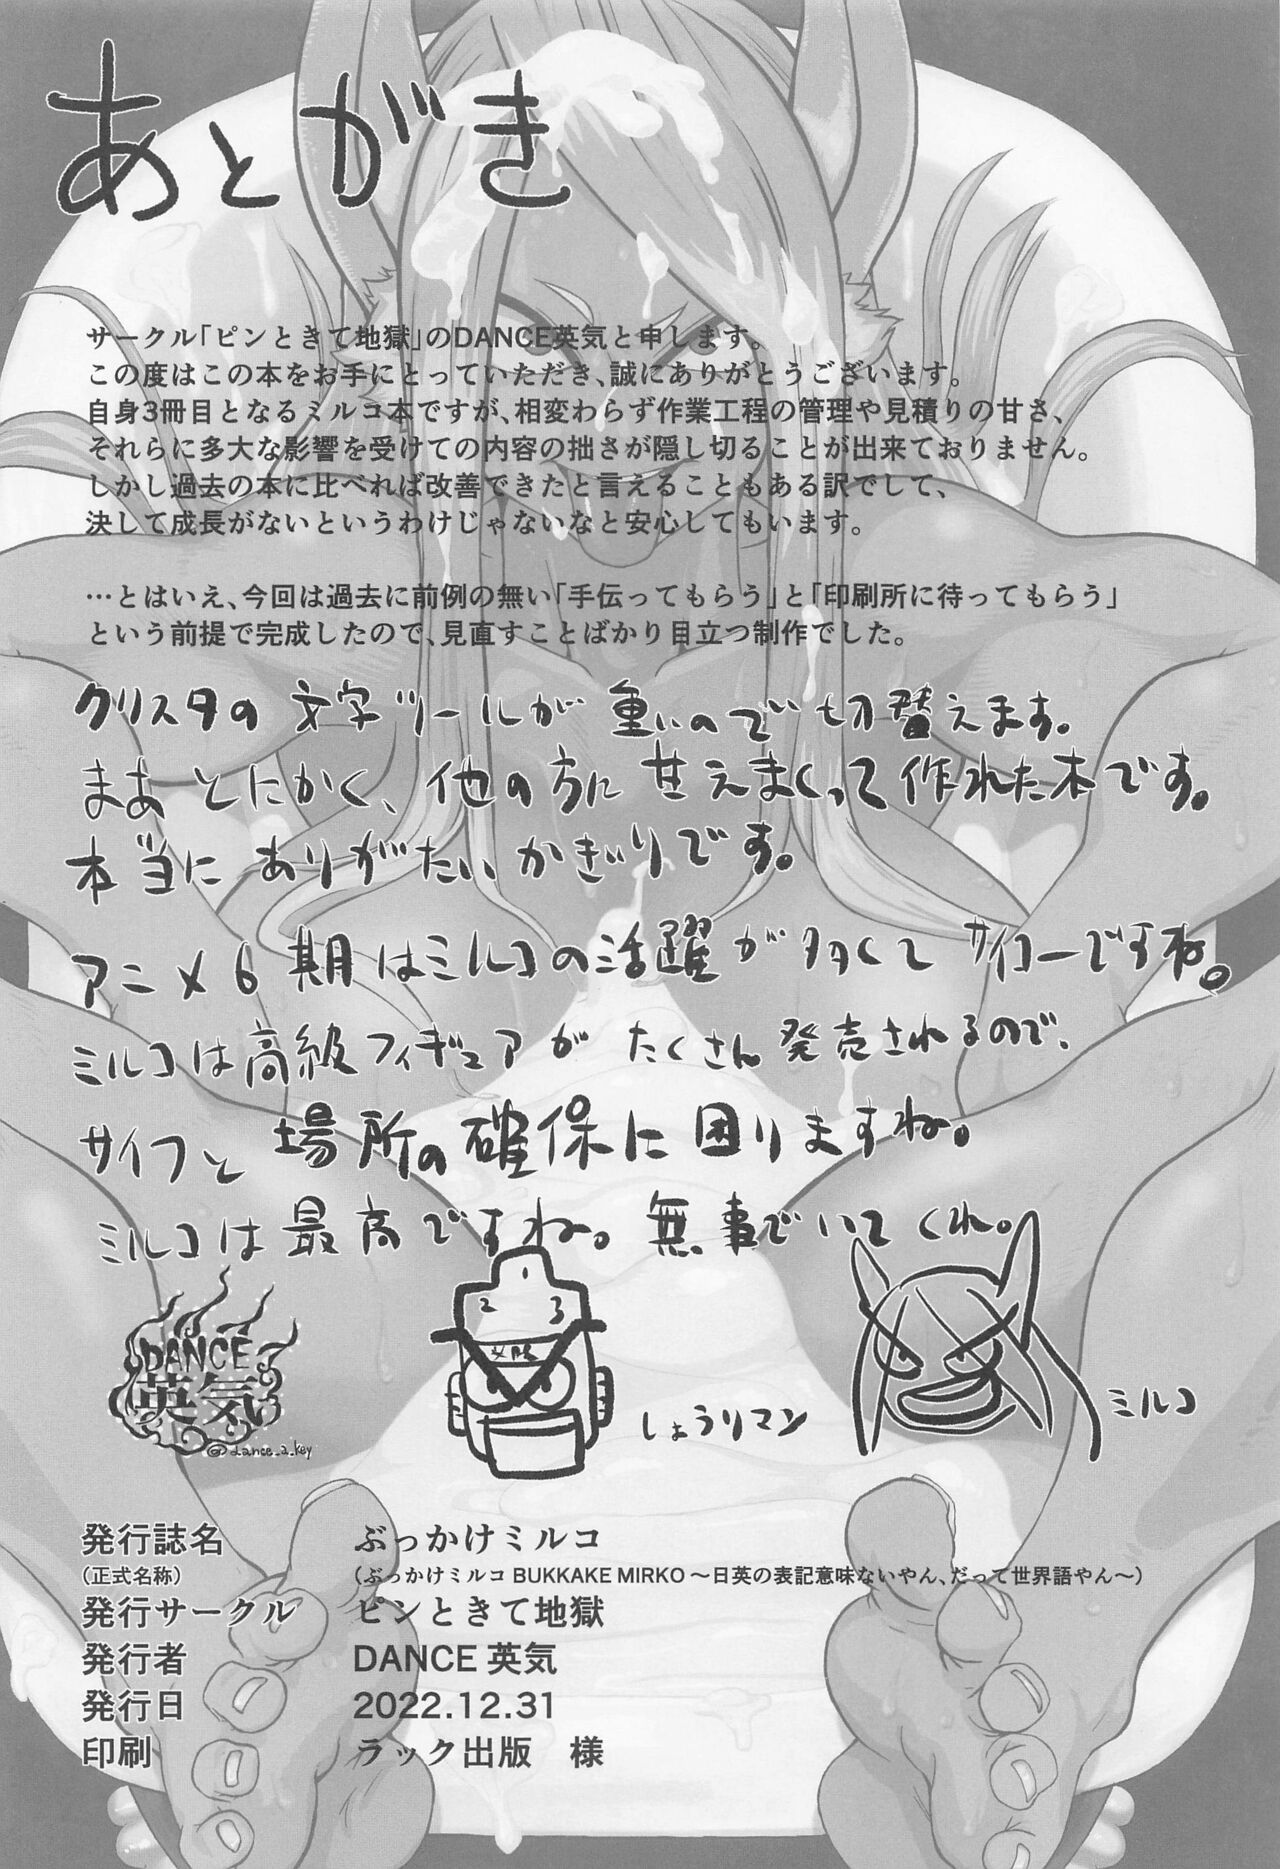 あとがき
サークル「ピンときて地獄」のDANCE英気と申します。
この度はこの本をお手にとっていただき、誠にありがとうございます。
自身3冊目となるミルコ本ですが、相変わらず作業工程の管理や見積りの甘さ、
それらに多大な影響を受けての内容の拙さが隠し切ることが出来ておりません。
しかし過去の本に比べれば改善できたと言えることもある訳でして、
決して成長がないというわけじゃないなと安心してもいます。
…とはいえ、今回は過去に前例の無い「手伝ってもらう」と「印刷所に待ってもらう」
という前提で完成したので、見直すことばかり目立つ制作でした。
クリスタの文字ツールが重いので切替えます。
まあとにかく、他の方に甘えまくって作れた本です。
本当にありがたいかぎりです。
アニメ6期はミルコの活躍が多くてサイコーですね。
ミルコは高級フィギュアがたくさん発売されるので、
サイフと場所の確保に困りますね。
ミルコは最高ですね。無事でいてくれ。
DANCE
英気
@dance_a_key
1
2 3
必勝
しょうりマン
ミルコ
発行誌名 ぶっかけミルコ
(正式名称) (ぶっかけミルコ BUKKAKE MIRKO ～日英の表記意味ないやん、だって世界語やん～)
発行サークル ピンときて地獄
発行者 DANCE 英気
発行日 2022.12.31
印刷 ラック出版 様